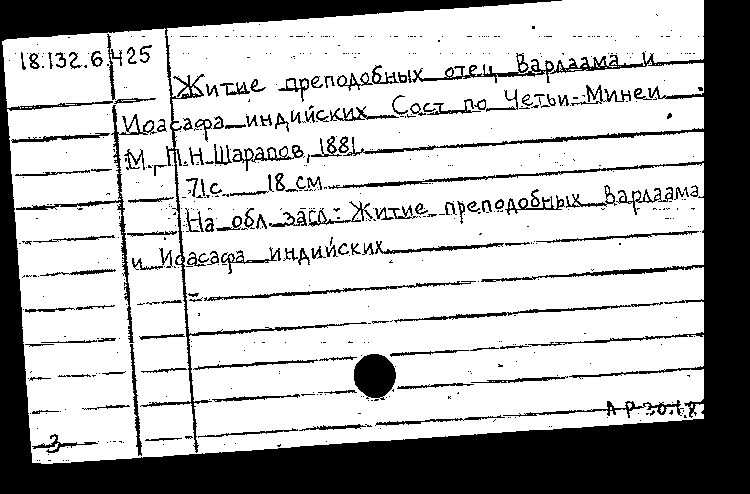 18.132.6.425
Житие преподобных отец Варлаама и
Иоасафа индийских Сост по Четьи-Минеи
М., П.Н. Шарапов, 1881.
71с 18 см
На обл. загл.: Житие преподобных Варлаама
и Иоасафа индийских
АР 30.
3